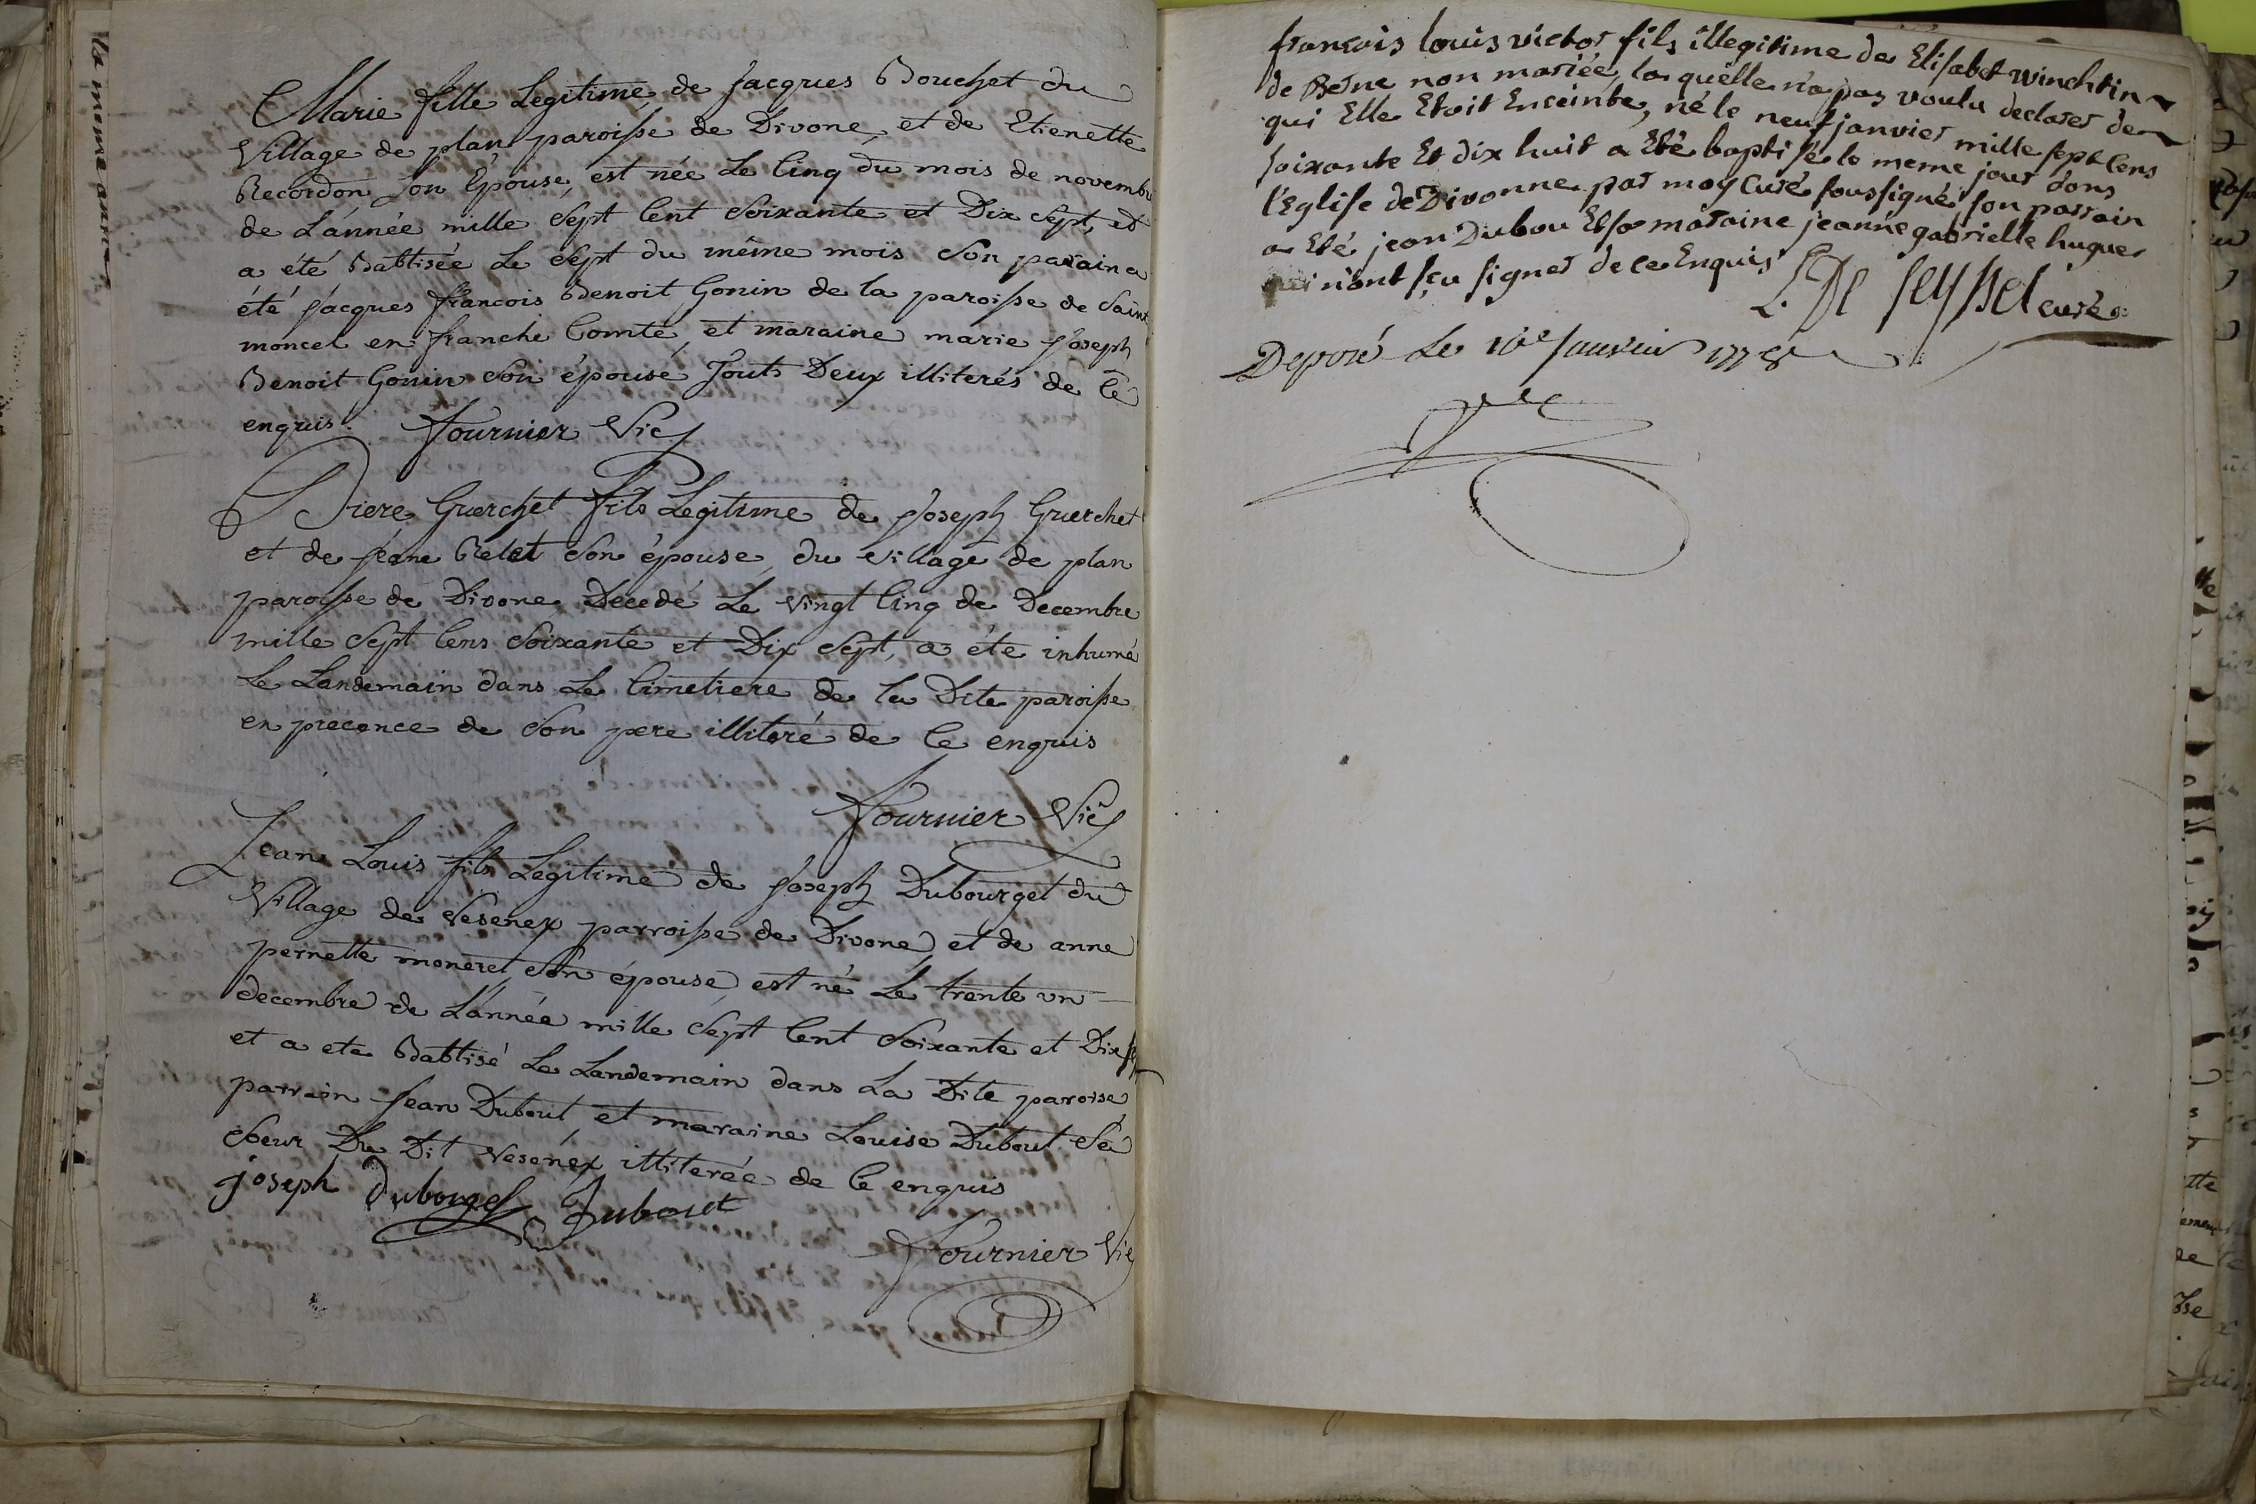 Marie fille Legitime de Jacques Bouchet du
Village de plan paroisse de Divone, et de Etienette
Recordon son Epouse, est née Le Cinq du mois de novembre
de L'année mille Sept Cent Soixante et Dix Sept, et
a été Babtisée Le Sept du même mois Son parain a
été Jacques francois Benoit Gonin de la paroisse de Saint
moncel en franche Comté, et maraine marie Joseph
Benoit Gonin Son épouse Touts Deux illiterés de Ce
enquis. Fournier Vic
Piere Guerchet fils Legitime de Joseph Guerchet
et de Jeane Relet Son épouse du village de plan
paroisse de Divone Decedé Le vingt Cinq de Decembre
mille Sept Cens Soixante et Dix Sept, a éte inhumé
Le Landemain dans Le Cimetiere de la Dite paroisse
en precence de Son pere illiteré de Ce enquis
Fournier Vic
Jean Louis fils Legitime de Joseph Dubourgel du
Village de Vesenex parroisse de Divone, et de anne
pernette moneret Son épouse, est né Le trente un
decembre de L'année mille Sept Cent Soixante et Dix Sept
et a ete Babtisé Le Landemain dans La Dite paroise
parrain Jean Dubout, et maraine Louise Dubout Sa
Soeur Du Dit Vesenex illiterée de Ce enquis
joseph Dubourgel Dubout
Fournier Vic
françois louis victor fils illegitime de Elisabet winchtin
de Berne non mariée, la quelle n'a pas voulu declarer de
qui Elle Etoit Enceinte, né le neuf janvier mille sept Cens
soixante Et dix huit a Eté baptisé le meme jour dans
l'Eglise de Divonne par moy Curé soussigné son parrain
a Eté jean Dubou Et sa maraine jeanne gabrielle hugues
qui n'ont sçu signer de ce Enquis
De seyssel curé
Deposé Le 10e Janvier 1778
la meme année